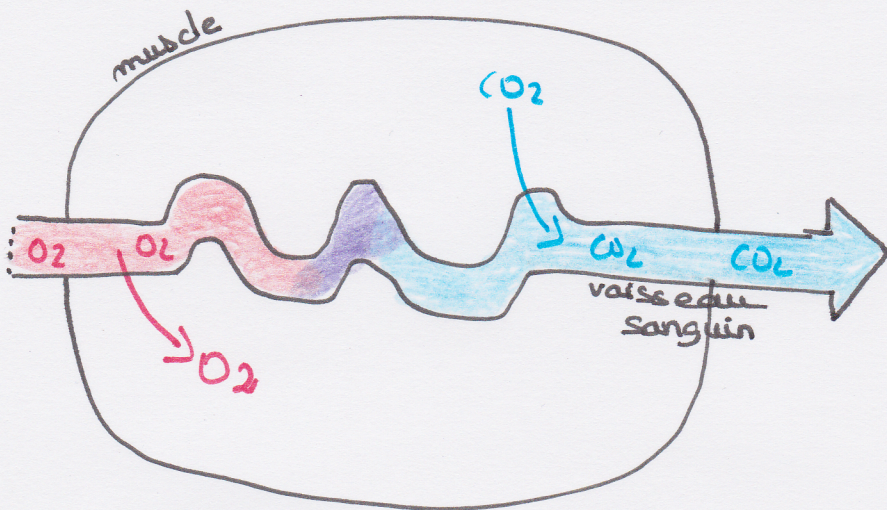 muscle
CO2
O2 O2
CO2 CO2
vaisseau
sanguin
O2